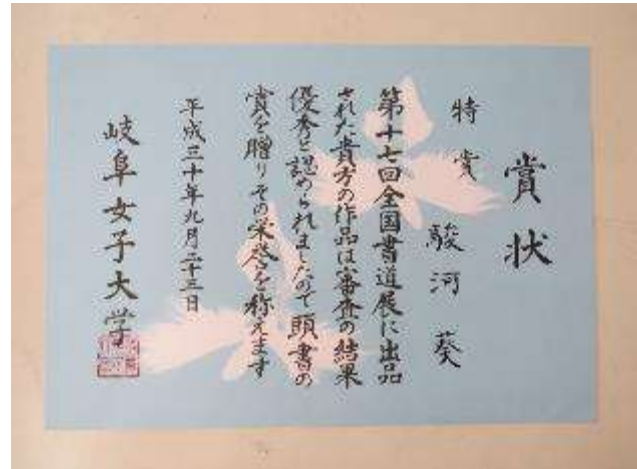 賞状
特賞 駿河葵
第十七回全国書道展に出品
された貴方の作品は審査の結果
優秀と認められましたので頭書の
賞を贈りその栄誉を称えます
平成三十年九月二十三日
岐阜女子大学